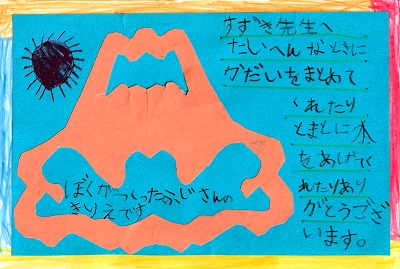 すずき先生へ
たいへんなときに
グだいをまとめて
くれたり
とまとに水
をあげてく
れたりあり
がとうござ
います。
ぼくがつくったふじさんの
きりえです